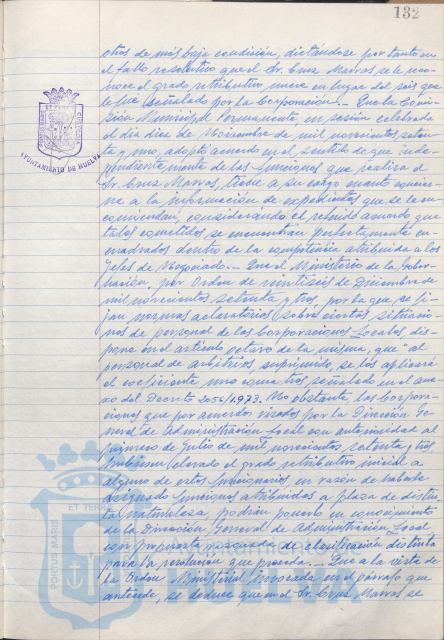 132
otros de más baja condición, dictándose por tanto en
el fallo resolutivo que el Sr. Cruz Marras se le reco-
noce el grado retributivo nueve en lugar del seis que
le fue señalado por la Corporación.- Que la Comi-
sión Municipal Permanente, en sesión celebrada
el día diez de Noviembre de mil novecientos seten-
ta y uno, adoptó acuerdo en el sentido de que inde-
pendientemente de las funciones que realiza el
Sr. Cruz Marras, lleve a su cargo cuanto concier-
ne a la información de expedientes que se le en-
comiendan, considerando el referido acuerdo que
tales cometidos se encuentran perfectamente en-
cuadrados dentro de la competencia atribuida a los
Jefes de Negociado.- Que el Ministerio de la Gober-
nación, por Orden de veintiseis de Diciembre de
mil novecientos setenta y tres, por la que se fi-
jan normas aclaratorias sobre ciertas situacio-
nes de personal de las Corporaciones Locales dis-
pone en el artículo octavo de la misma, que "al
personal de arbitrios suprimido, se les aplicará
el coeficiente uno coma tres señalado en el ane-
xo del Decreto 2056/1.973. No obstante, las Corpora-
ciones que por acuerdo visados por la Dirección Ge-
neral de Administración Local con anterioridad al
primero de Julio de mil novecientos setenta y tres
hubiesen valorado el grado retributivo inicial a
alguno de estos funcionarios en razón de haberle
asignado funciones atribuidas a plaza de distin-
ta naturaleza, podrán ponerlo en conocimiento
de la Dirección General de Administración Local
con propuesta razonada de clasificación distinta
para la resolución que proceda.- Que a la vista de
la Orden Ministerial invocada en el párrafo que
antecede, se deduce que en el Sr. Cruz Marras se
AYUNTAMIENTO DE HUELVA
PORTUS MARIS ET TERRAE
Ayuntamiento
HUELVA